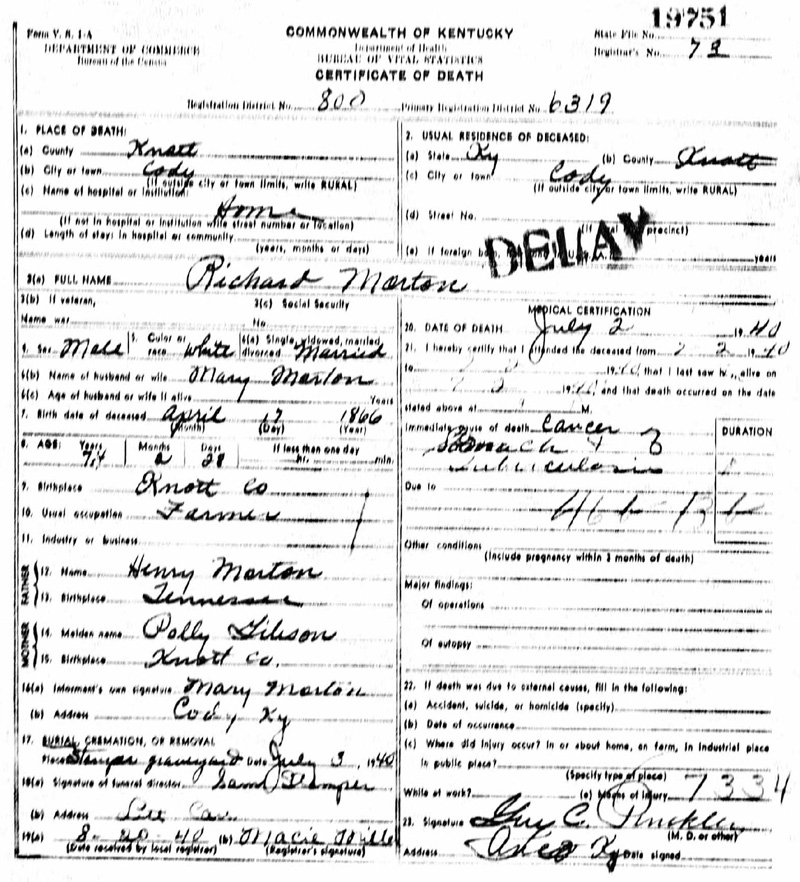 19751
Form V. S. 1-A
DEPARTMENT OF COMMERCE
Bureau of the Census
COMMONWEALTH OF KENTUCKY
Department of Health
BUREAU OF VITAL STATISTICS
CERTIFICATE OF DEATH
State File No.
Registrar's No. 73
Registration District No. 800 Primary Registration District No. 6319
1. PLACE OF DEATH:
(a) County Knott
(b) City or town Cody
(If outside city or town limits, write RURAL)
(c) Name of hospital or institution:
Home
(If not in hospital or institution write street number or location)
(d) Length of stay: in hospital or community
(years, months or days)
2. USUAL RESIDENCE OF DECEASED:
(a) State Ky (b) County Knott
(c) City or town Cody
(If outside city or town limits, write RURAL)
(d) Street No.
(If precinct)
(e) If foreign years
DELAY
3(a) FULL NAME Richard Morton
3(b) If veteran, 3(c) Social Security
Name war No.
4. Sex Male 5. Color or race White 6(a) Single, widowed, married, divorced Married
6(b) Name of husband or wife Mary Morton
6(c) Age of husband or wife if alive Years
7. Birth date of deceased April 17 1866
(Month) (Day) (Year)
8. AGE: Years Months Days If less than one day
74 2 hr. min.
9. Birthplace Knott Co
10. Usual occupation Farmer
11. Industry or business
FATHER
12. Name Henry Morton
13. Birthplace Tennessee
MOTHER
14. Maiden name Polly Gibson
15. Birthplace Knott Co.
16(a) Informent's own signature Mary Morton
(b) Address Cody Ky
17. BURIAL, CREMATION, OR REMOVAL
Place graveyard Date July 3, 1940
18(a) Signature of funeral director Sam Stamper
(b) Address
19(a) 8-20-40 (b) Macie Mille
(Date received by local registrar) (Registrar's signature)
MEDICAL CERTIFICATION
20. DATE OF DEATH July 2 1940
21. I hereby certify that I attended the deceased from 7 2 1940
to 1940, that I last saw h alive on
7 2 1940, and that death occurred on the date
stated above at M.
Immediate cause of death Cancer
DURATION
Stomach &
Tuberculosis
Due to
Other conditions
(Include pregnancy within 3 months of death)
Major findings:
Of operations
Of autopsy
22. If death was due to external causes, fill in the following:
(a) Accident, suicide, or homicide (specify)
(b) Date of occurrence
(c) Where did injury occur? In or about home, on farm, in industrial place
in public place?
(Specify type of place)
While at work? (e) Means of injury 7334
23. Signature Guy C.
(M. D. or other)
Address Ky Date signed